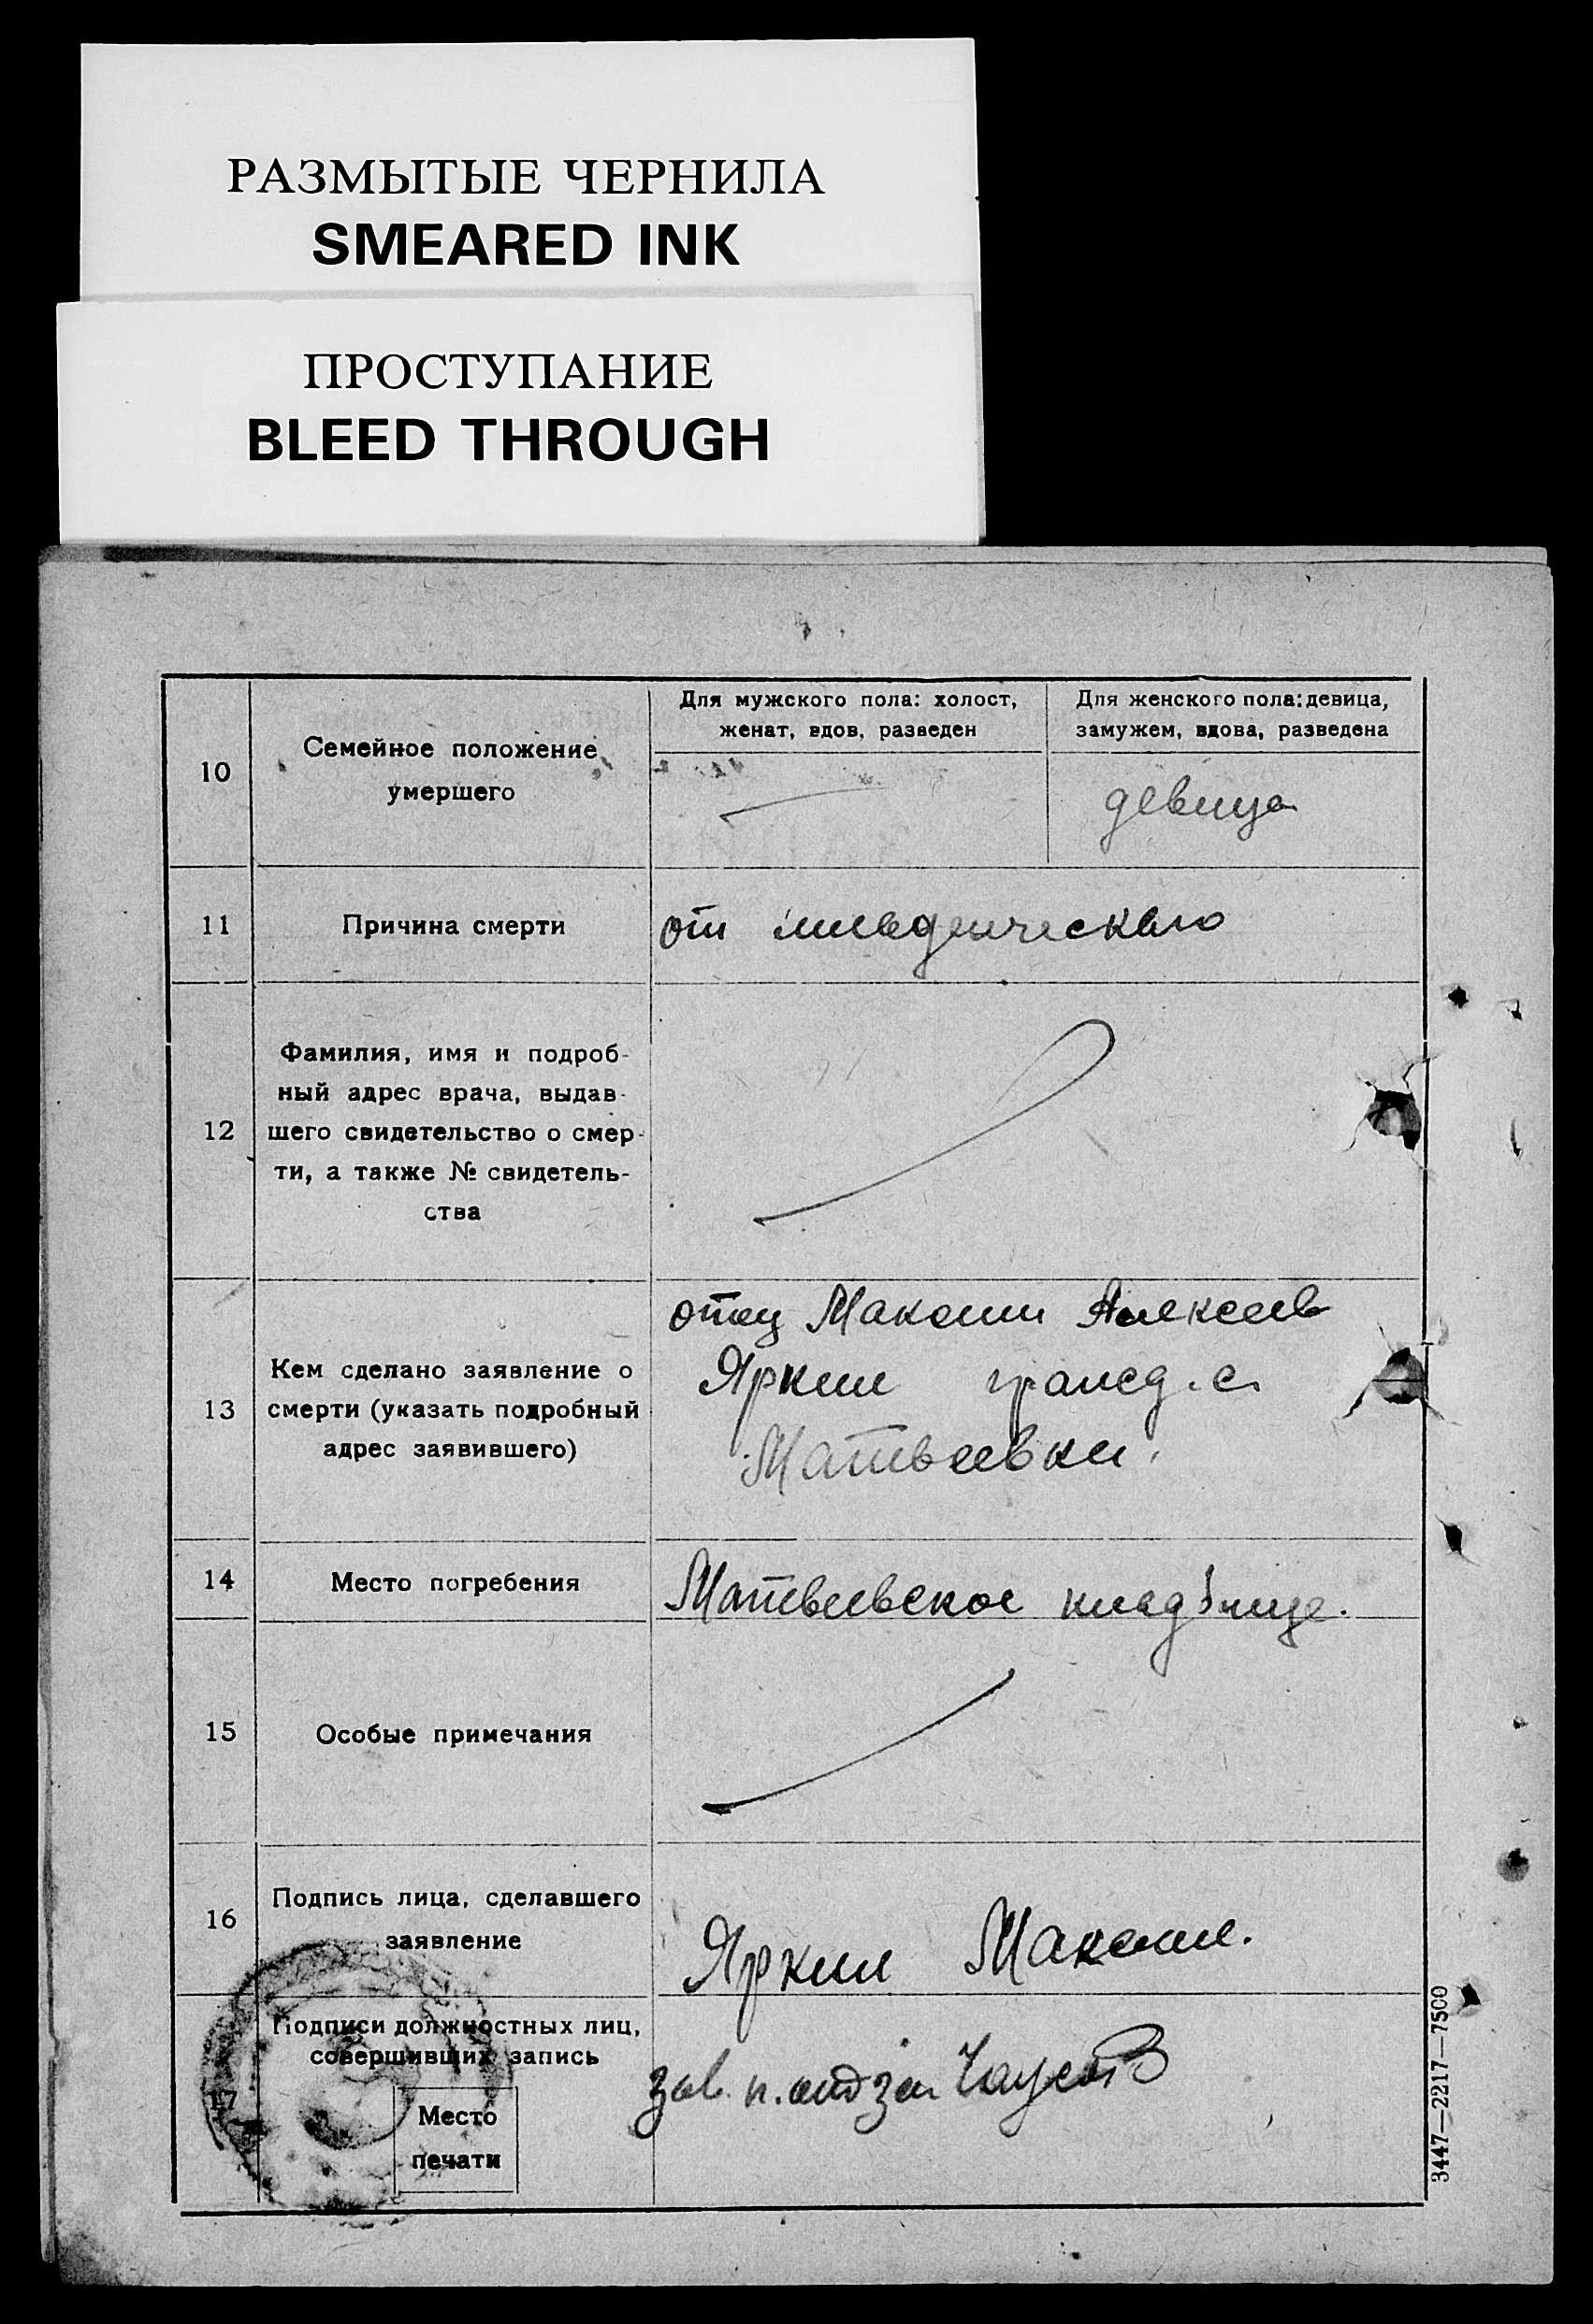 РАЗМЫТЫЕ ЧЕРНИЛА
SMEARED INK
ПРОСТУПАНИЕ
BLEED THROUGH
10
Семейное положение
умершего
Для мужского пола: холост,
женат, вдов, разведен
Для женского пола: девица,
замужем, вдова, разведена
девица
11
Причина смерти
от
12
Фамилия, имя и подроб-
ный адрес врача, выдав-
шего свидетельство о смер-
ти, а также № свидетель-
ства
13
Кем сделано заявление о
смерти (указать подробный
адрес заявившего)
отец Максим Алексеев
Яркин гражд. с.
Матвеевки.
14
Место погребения
Матвеевское
15
Особые примечания
16
Подпись лица, сделавшего
заявление
Яркин Максим.
17
Подписи должностных лиц,
совершивших запись
Место
печати
зав.
3447—2217—7500